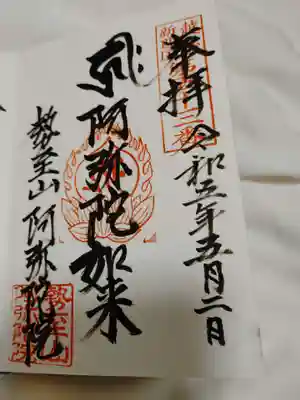 奉拝
令和五年五月二日
阿弥陀如来
勢至山 阿弥陀院